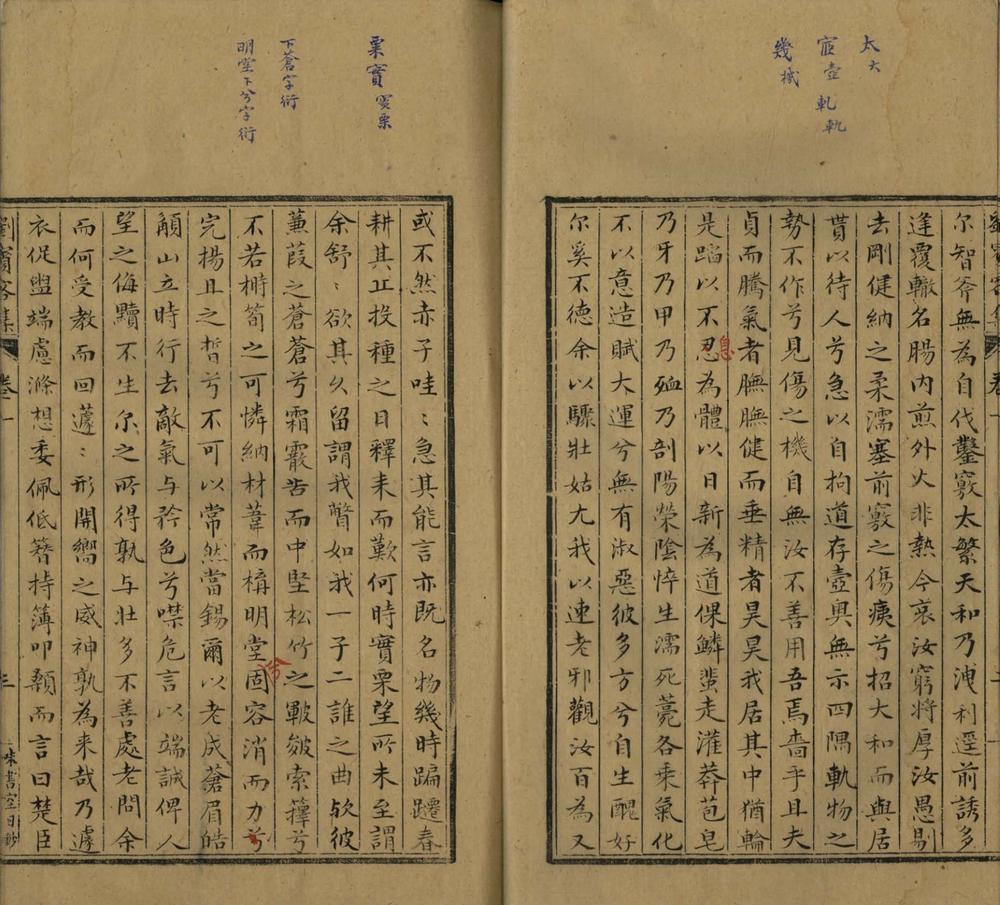 太大
宧壺
軌軌
幾機
尔智斧無為自代鑿竅太繁天和乃洩利逕前誘多
逢覆轍名腸內煎外火非熱今哀汝窮將厚汝愚剔
去剛健納之柔濡塞前竅之傷痍兮招大和而與居
貰以待人兮急以自拘道存壺奥無示四隅軌物之
勢不作兮見傷之機自無汝不善用吾焉嗇乎且夫
貞而騰氣者膴膴健而垂精者昊昊我居其中猶輪
是蹈以不忍為體以日新為道倮鱗蜚走灌莽苞皂
息
乃牙乃甲乃殈乃剖陽榮陰悴生濡死薧各乘氣化
不以意造賦大運兮無有淑惡彼多方兮自生醜好
尔奚不德余以驟壯姑尤我以速老邪觀汝百為又
栗實 實栗
下蒼字衍
明堂下兮字衍
或不然赤子哇〻急其能言亦既名物幾時蹁躚春
耕其丘投種之日釋耒而歎何時實栗望所未至謂
余舒〻欲其久留謂我瞥如我一子二誰之曲欤彼
蒹葭之蒼蒼兮霜霰苦而中堅松竹之皸皴索籜兮
不若榯筍之可憐納材葦而構明堂固容消而力兮
兮
完揚且之晳兮不可以常然當錫爾以老成蒼眉皓
䪼山立時行去敵氣与矜色兮噤危言以端誠俾人
望之侮黷不生尔之所得孰与壯多不善處老問余
而何受教而回蘧〻形開嚮之威神孰為来哉乃遽
衣促盥端慮滌想委佩低簪持簿叩顙而言曰楚臣
劉賓客集 卷一
一味書室日鈔